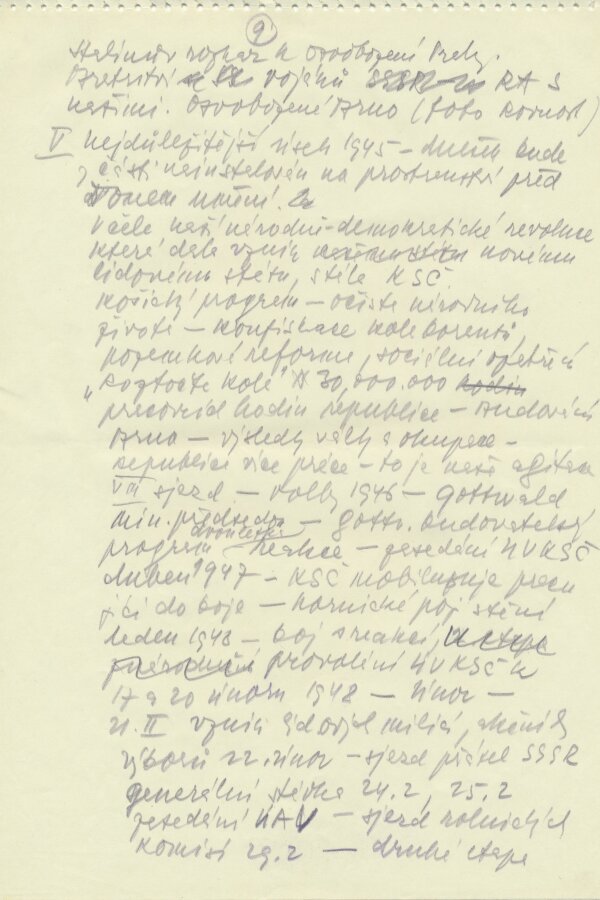 9
Stalinův rozkaz k osvobození Prahy.
Bratrství vojáků SSSR RA s
našimi. Osvobozené Brno (foto kornout)
V nejdůležitější úsek 1945 – bude
z části neinstalován na prostranství před
Domem umění.
V čele naší národně-demokratické revoluce
které dala vznik novému
lidovému státu, stála KSČ.
Košický program – očista národního
života – konfiskace kolaborantů,
pozemková reforma, sociální opatření
"Roztočte kola" 30,000.000 hodin
pracovních hodin republice – budování
Brno – výsledky války a okupace –
republice více práce – to je naše agitace
VIII sjezd – volby 1946 – Gottwald
min. předseda – Gottw. budovatelský
dvouletka
program – reakce – zasedání ÚV KSČ
duben 1947 – KSČ mobilizuje pracu
jící do boje – hornické poj. štění
leden 1948 – boj s reakcí,
provolání ÚV KSČ k
17 a 20 únoru 1948 – únor –
21. II vznik lidových milicí, akčních
výborů 22. únor – sjezd přátel SSSR
generální stávka 24.2, 25.2
zasedání ÚAV – sjezd rolnických
komisí 29.2 – druhá etapa